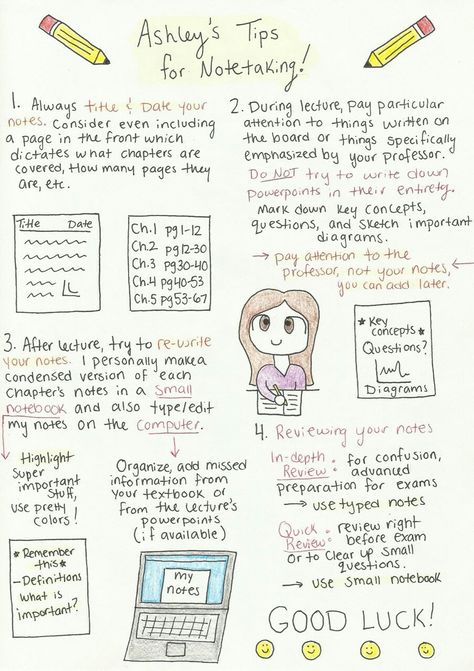 Ashley's Tips
for Notetaking!
1. Always Title & Date your
notes. Consider even including
a page in the front which
dictates what chapters are
covered, How many pages they
are, etc.
Title Date
Ch.1 pg1-12
Ch.2 pg12-30
Ch.3 pg30-40
Ch.4 pg40-53
Ch.5 pg53-67
2. During lecture, pay particular
attention to things written on
the board or things specifically
emphasized by your professor.
Do NOT try to write down
Powerpoints in their entirety.
Mark down key concepts,
questions, and sketch important
diagrams.
→ pay attention to the
professor, not your notes, ←
you can add later.
* Key *
concepts
Questions?
Diagrams
3. After lecture, try to re-write
your notes. I personally make a
condensed version of each
chapter's notes in a small
notebook and also type/edit
my notes on the computer.
Highlight
super
important
stuff,
use pretty
colors!
* Remember
this *
- Definitions
what is
important?
Organize, add missed
information from
your textbook or
from the lecture's
powerpoints
(if available)
my
notes
4. Reviewing your notes
In-depth
Review: for confusion,
advanced
preparation for exams
→ use typed notes
Quick
Review: review right
before exam
or to clear up small
questions.
→ use small notebook
GOOD LUCK!